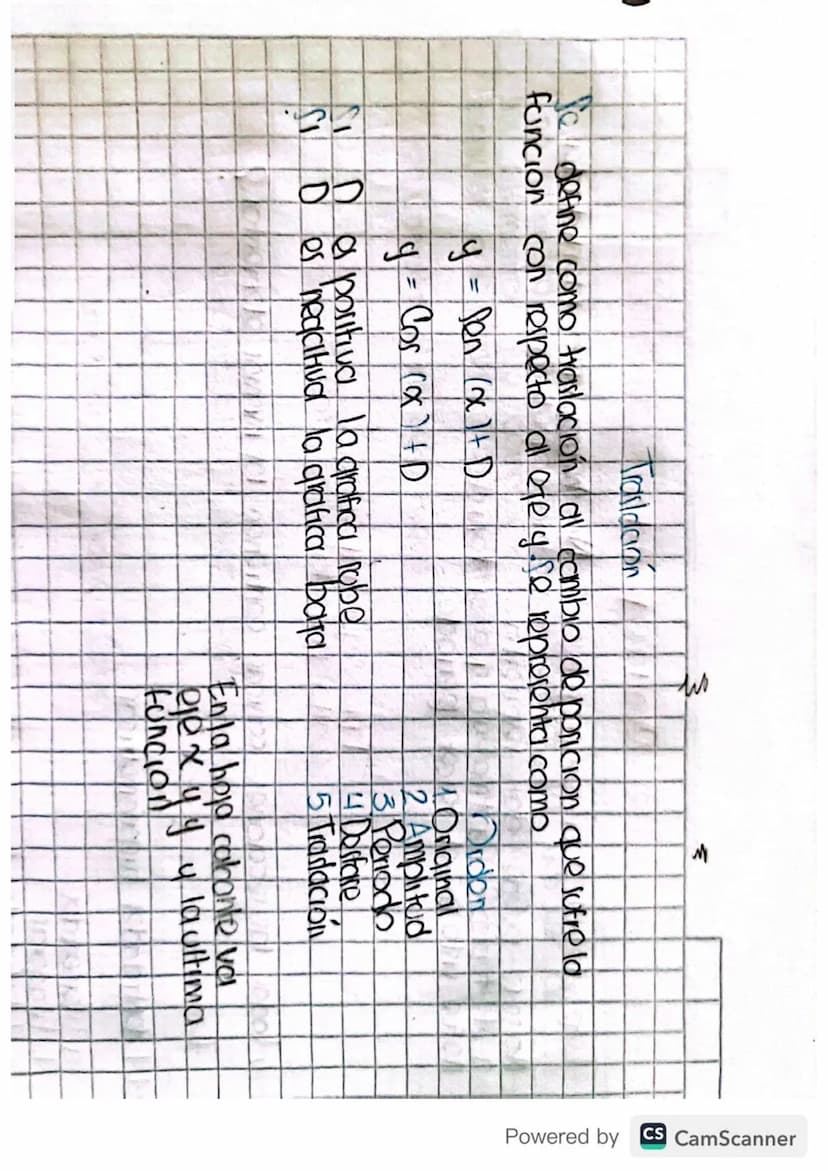 Traslación
Se define como traslación al cambio de posicion que sufre la
funcion con respecto al eje y se representa como
y = Sen (x) + D
y = Cos (x) + D
Si D es positiva la grafica sube
Si D es negativa la grafica baja
Orden
1 Original
2 Amplitud
3 Periodo
4 Desfase
5 Traslación
En la hoja cabante va
eje x y y y la ultima
funcion
Powered by CS CamScanner